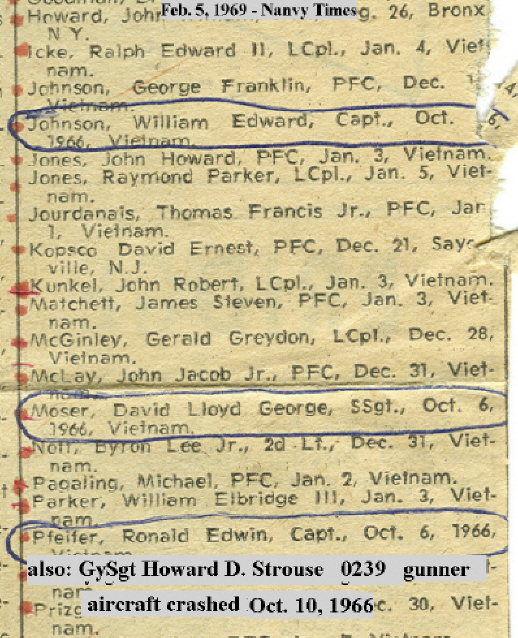 Feb. 5, 1969 - Nanvy Times
Howard, John g. 26, Bronx
N Y.
Icke, Ralph Edward II, LCpl., Jan. 4, Viet-
nam.
Johnson, George Franklin, PFC, Dec. 14,
Vietnam.
Johnson, William Edward, Capt., Oct. 6,
1966, Vietnam.
Jones, John Howard, PFC, Jan. 3, Vietnam.
Jones, Raymond Parker, LCpl., Jan. 5, Viet-
nam.
Jourdanais, Thomas Francis Jr., PFC, Jan
1, Vietnam.
Kopsco David Ernest, PFC, Dec. 21, Sayre-
ville, N.J.
Kunkel, John Robert, LCpl., Jan. 3, Vietnam.
Matchett, James Steven, PFC, Jan. 3, Viet-
nam.
McGinley, Gerald Greydon, LCpl., Dec. 28,
Vietnam.
McLay, John Jacob Jr., PFC, Dec. 31, Viet-
nam.
Moser, David Lloyd George, SSgt., Oct. 6,
1966, Vietnam.
Nott, Byron Lee Jr., 2d Lt., Dec. 31, Viet-
nam.
Pagaling, Michael, PFC, Jan. 2, Vietnam.
Parker, William Elbridge III, Jan. 3, Viet-
nam.
Pfeifer, Ronald Edwin, Capt., Oct. 6, 1966,
Vietnam.
also: GySgt Howard D. Strouse 0239 gunner
nam
Prizg aircraft crashed Oct. 10, 1966 c. 30, Viet-
nam.